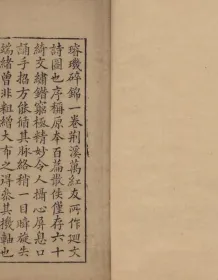 璿璣碎錦一卷荆溪萬紅友所作廻文
詩圖也序稱原本百篇散佚僅存六十
綺文繡錯窮極精妙令人攝心屏息口
誦手招方能循其脈絡稍一目瞬旋失
端緒曾非粗繒大布之尋㕘其機軸也